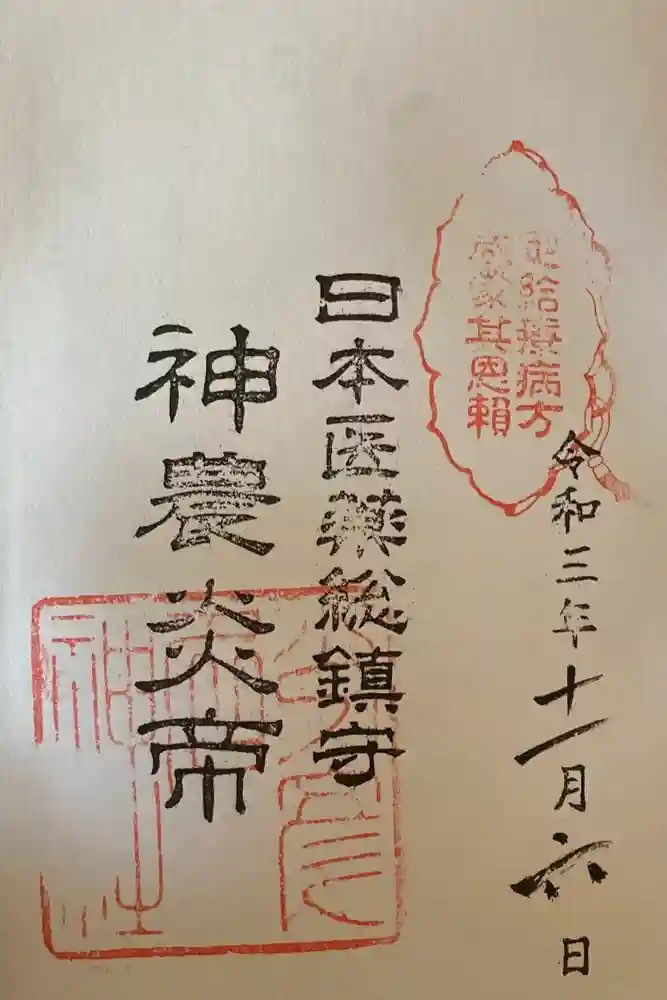 令和三年十一月六日
給療病方
咸蒙其恩賴
日本医薬総鎮守
神農炎帝